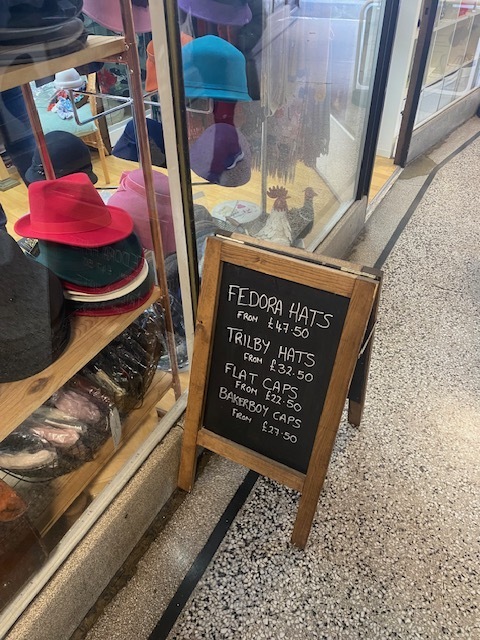 FEDORA HATS
FROM £47.50
TRILBY HATS
FROM £32.50
FLAT CAPS
FROM £22.50
BAKERBOY CAPS
FROM £27.50